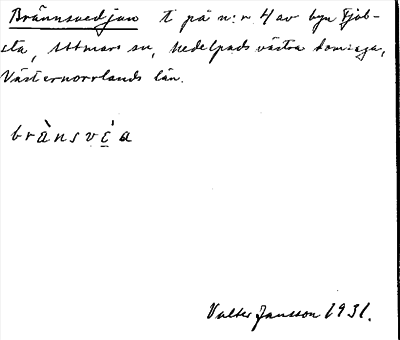 Brännsvedjan t på n:r 4 av byn Fjöl-
sta, Attmars sn, Medelpads västra domsaga,
Västernorrlands län.
brànsvéa
Valter Jansson 1931.